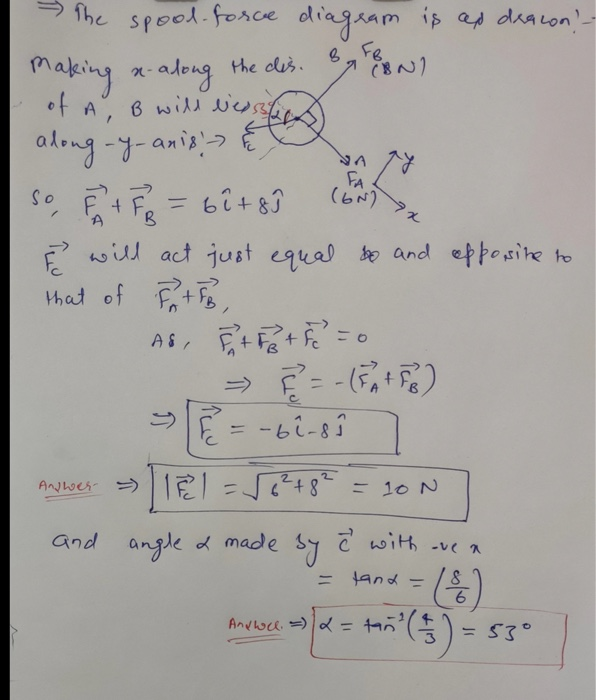 ⇒ The spool-force diagram is as drawn:-
Making x-along the dis.
of A, B will lies
along-y-axis:→
B F_B
(8N)
53° α
F_C
A
F_A
(6N)
y
x
So, F⃗_A + F⃗_B = 6î+8ĵ
F⃗_C will act just equal to and opposite to
that of F⃗_A+F⃗_B,
As, F⃗_A+F⃗_B+F⃗_C = 0
⇒ F⃗_C = -(F⃗_A+F⃗_B)
⇒ F⃗_C = -6î-8ĵ
Answer ⇒ |F⃗_C| = √6²+8² = 10 N
and angle α made by C⃗ with -ve x
= tanα = (8/6)
Answer ⇒ α = tan⁻¹(4/3) = 53°